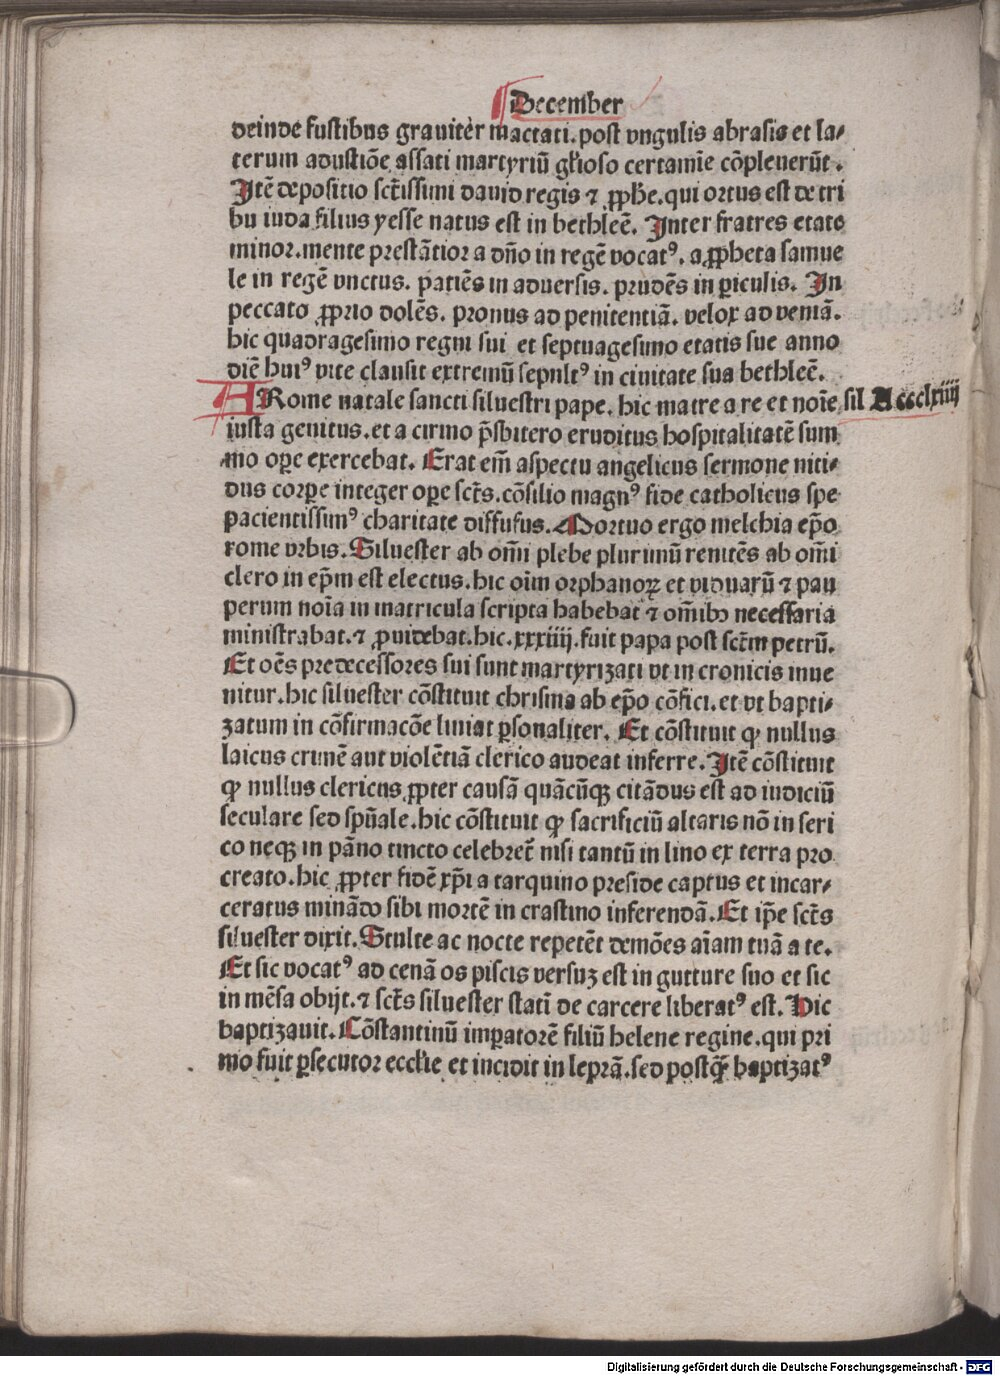 December
deinde fustibus grauiter mactati. post vngulis abrasis et la⸗
terum adustiõe assati martyriũ gl̃ioso certamĩe cõpleuerũt.
Itẽ depositio sctĩssimi dauid regis ⁊ ꝓph̃e. qui ortus est de tri
bu iuda filius yesse natus est in bethleẽ. Inter fratres etate
minor. mente prestãtior a dño in regẽ vocatꝰ. a ꝓpheta samue
le in regẽ vnctus. patiẽs in aduersis. prudẽs in ꝑiculis. In
peccato ꝓprio dolẽs. pronus ad penitentiã. velox ad veniã.
hic quadragesimo regni sui et septuagesimo etatis sue anno
diẽ huiꝰ vite clausit extremũ sepultꝰ in ciuitate sua bethleẽ.
A Rome natale sancti siluestri pape. hic matre a re et noĩe sil A ccclxiiij
iusta genitus. et a cirino p̃sbitero eruditus hospitalitatẽ sum
mo oꝑe exercebat. Erat em̃ aspectu angelicus sermone niti⸗
dus corꝑe integer oꝑe sct̃s. cõsilio magnꝰ fide catholicus spe
pacientissimꝰ charitate diffusus. Mortuo ergo melchia ep̃o
rome vrbis. Siluester ab om̃i plebe plurimũ renitẽs ab om̃i
clero in ep̃m est electus. hic oĩm orphanoꝝ et viduarũ ⁊ pau
perum noĩa in matricula scripta habebat ⁊ om̃ibꝰ necessaria
ministrabat. ⁊ ꝓuidebat. hic. xxxiiij. fuit papa post sct̃m petrũ.
Et oẽs predecessores sui sunt martyrizati vt in cronicis inue
nitur. hic siluester cõstituit chrisma ab ep̃o cõfici. et vt bapti⸗
zatum in cõfirmacõe liniat ꝑsonaliter. Et cõstituit ꝙ nullus
laicus crimẽ aut violẽtiã clerico audeat inferre. Itẽ cõstituit
ꝙ nullus clericus ꝓpter causã quãcũqꝫ citãdus est ad iudiciũ
seculare sed spũale. hic cõstituit ꝙ sacrificiũ altaris nõ in seri
co neqꝫ in pãno tincto celebret̃ nisi tantũ in lino ex terra pro
creato. hic ꝓpter fidẽ xp̃i a tarquino preside captus et incar⸗
ceratus minãdo sibi mortẽ in crastino inferendã. Et ip̃e sct̃s
siluester dixit. Stulte ac nocte repetẽt demões aĩam tuã a te.
Et sic vocatꝰ ad cenã os piscis versuꝫ est in gutture suo et sic
in mẽsa obijt. ⁊ sct̃s siluester statĩ de carcere liberatꝰ est. Hic
baptizauit. Cõstantinũ imꝑatorẽ filiũ helene regine. qui pri
mo fuit ꝑsecutor eccl̃ie et incidit in leprã. sed postꝗ̃ baptizatꝰ
Digitalisierung gefördert durch die Deutsche Forschungsgemeinschaft - DFG